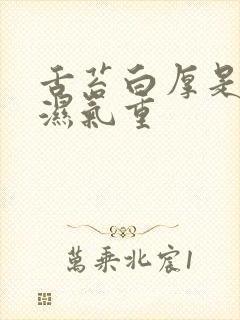 舌苔白厚是
濕氣重
萬乘北宸1